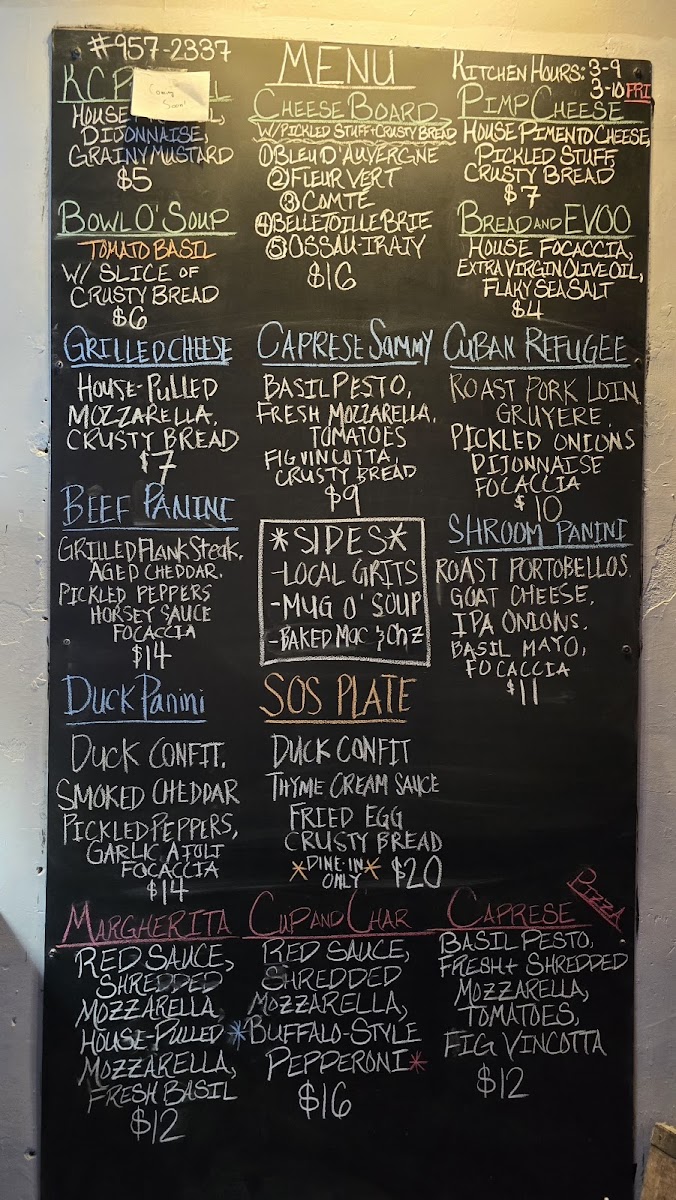 #957-2337
MENU
KITCHEN HOURS: 3-9
3-10 FRI
KC
Coming
Soon!
HOUSE
DIJONNAISE,
GRAINY MUSTARD
$5
CHEESE BOARD
W/PICKLED STUFF + CRUSTY BREAD
① BLEU D'AUVERGNE
② FLEUR VERT
③ COMTÉ
④ BELLETOILLE BRIE
⑤ OSSAU-IRATY
$16
PIMP CHEESE
HOUSE PIMENTO CHEESE,
PICKLED STUFF,
CRUSTY BREAD
$7
BOWL O' SOUP
TOMATO BASIL
W/ SLICE OF
CRUSTY BREAD
$6
BREAD AND EVOO
HOUSE FOCACCIA,
EXTRA VIRGIN OLIVE OIL,
FLAKY SEA SALT
$4
GRILLED CHEESE
HOUSE-PULLED
MOZZARELLA,
CRUSTY BREAD
$7
CAPRESE SAMMY
BASIL PESTO,
FRESH MOZZARELLA,
TOMATOES
FIG VINCOTTA,
CRUSTY BREAD
$9
CUBAN REFUGEE
ROAST PORK LOIN
GRUYERE,
PICKLED ONIONS
DIJONNAISE
FOCACCIA
$10
BEEF PANINI
GRILLED Flank Steak,
AGED CHEDDAR,
PICKLED PEPPERS
HORSEY SAUCE
FOCACCIA
$14
*SIDES*
-LOCAL GRITS
-MUG O' SOUP
-BAKED MAC & Chz
SHROOM PANINI
ROAST PORTOBELLOS,
GOAT CHEESE,
IPA ONIONS,
BASIL MAYO,
FOCACCIA
$11
DUCK Panini
DUCK CONFIT,
SMOKED CHEDDAR
PICKLED PEPPERS,
GARLIC AIOLI
FOCACCIA
$14
SOS PLATE
DUCK CONFIT
THYME CREAM SAUCE
FRIED EGG
CRUSTY BREAD
*DINE-IN
ONLY* $20
PIZZA
MARGHERITA
RED SAUCE,
SHREDDED
MOZZARELLA,
HOUSE-PULLED
MOZZARELLA,
FRESH BASIL
$12
CUP AND CHAR
RED SAUCE,
SHREDDED
MOZZARELLA,
*BUFFALO-STYLE
PEPPERONI*
$16
CAPRESE
BASIL PESTO,
FRESH + SHREDDED
MOZZARELLA,
TOMATOES,
FIG VINCOTTA
$12